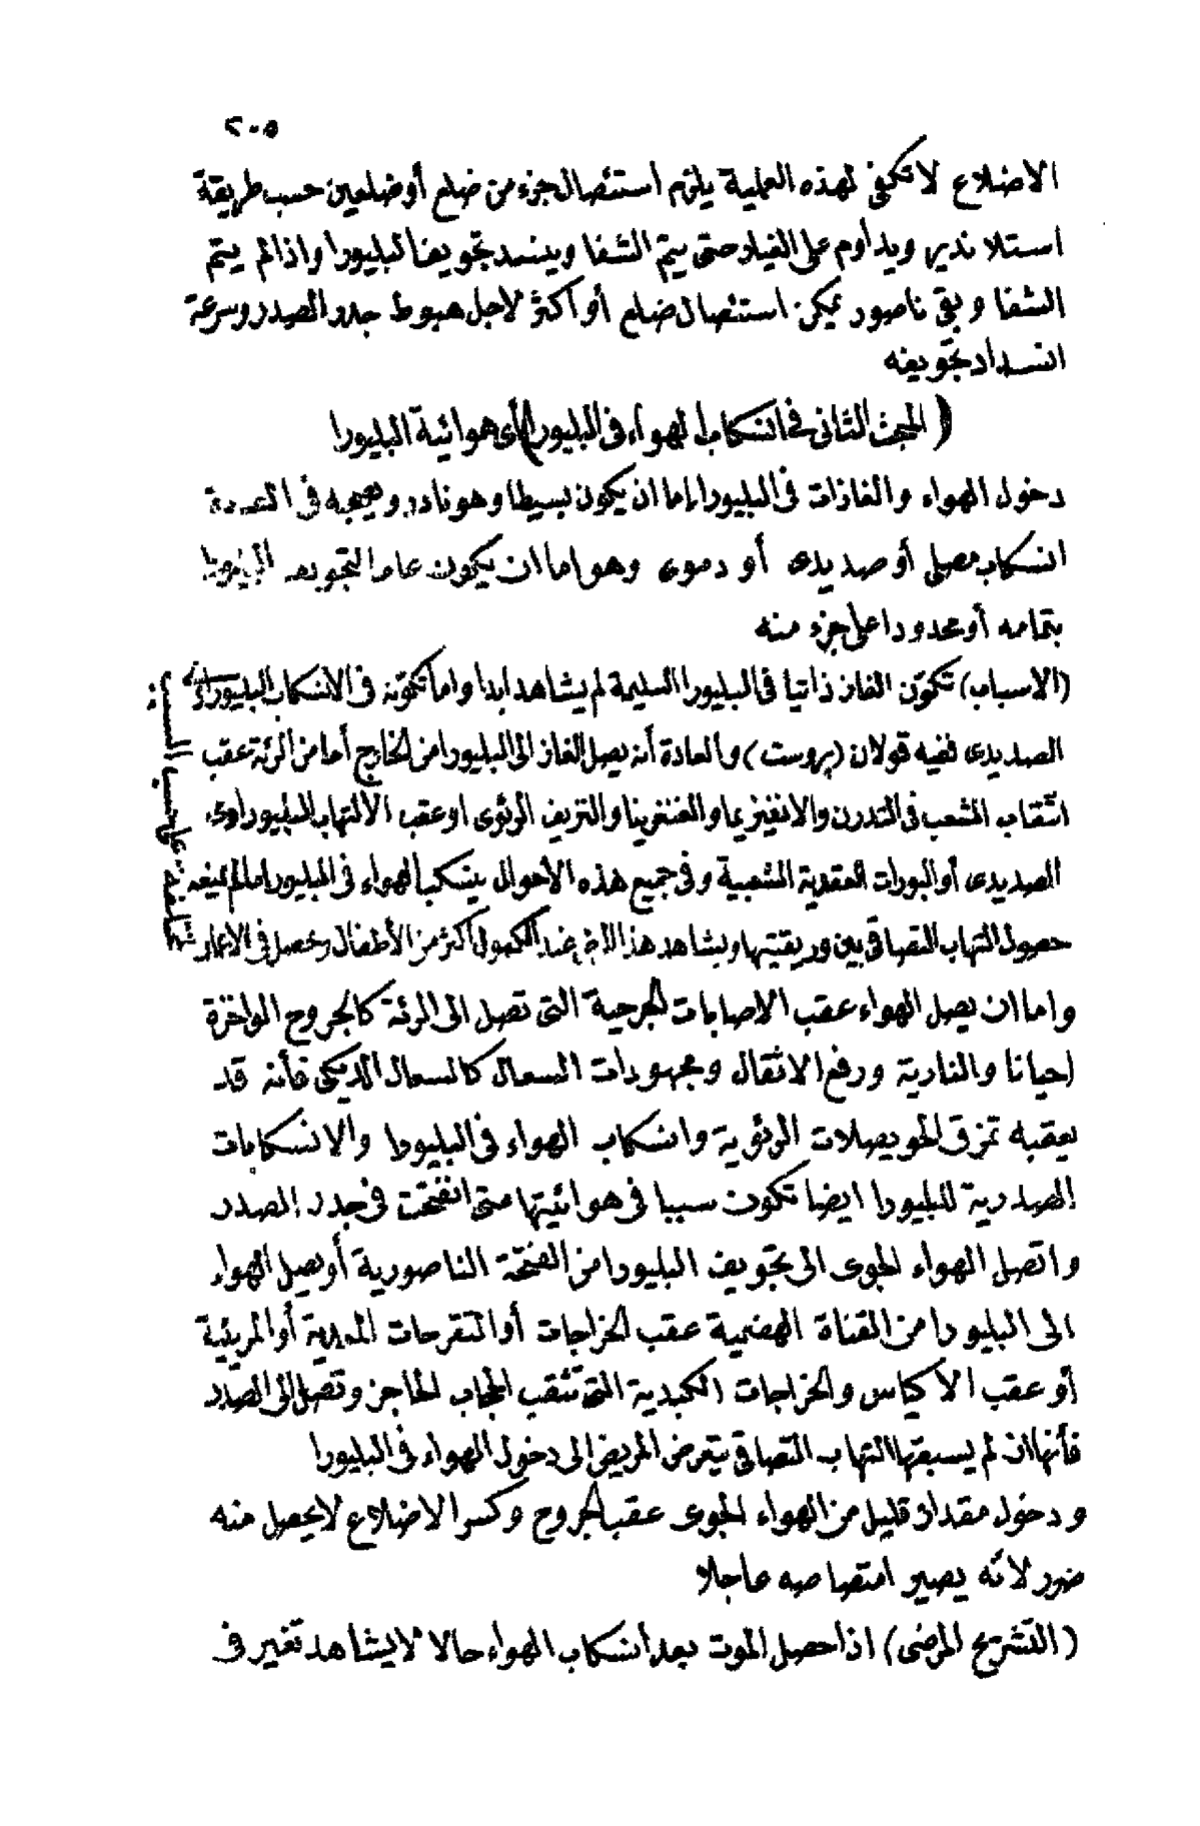 ٢٠٥
الاضلاع لا تكفى لهذه العملية يلزم استئصال جزء من ضلع أو ضلعين حسب طريقة
استلاندير ويداوم على الغيار حتى يتم الشفا وينسد تجويف البليورا واذا لم يتم
الشفا وبقى ناصور يمكن استئصال ضلع أو أكثر لاجل هبوط جدر الصدر وسرعة
انسداد تجويفه
( المبحث الثانى فى انسكاب الهواء فى البليورا ) أى هوائية البليورا
دخول الهواء والغازات فى البليورا اما ان يكون بسيطا وهو نادر ويصحبه فى العادة
انسكاب مصلى أو صديدى أو دموى وهو اما ان يكون عاما لتجويف البليورا
بتمامه أو محدودا على جزء منه
(الاسباب) تكوّن الغاز ذاتيا فى البليورا السليمة لم يشاهد ابدا واما تكوّنه فى الانسكاب البليوراوى
الصديدى ففيه قولان (پروست) والعادة أنه يصل الغاز الى البليورا من الخارج أما من الرئة عقب
انثقاب الشعب فى التدرن والانفيزيما والغنغرينا والنزيف الرئوى او عقب الالتهاب البليوراوى
الصديدى أو البورات العقدية الشعبية وفى جميع هذه الأحوال ينسكب الهواء فى البليورا ما لم يمنعه
حصول التهاب التصاقى بين وريقيتها ويشاهد هذا النوع عند الكهول أكثر من الأطفال ويحصل فى الايسار
واما ان يصل الهواء عقب الاصابات الجرحية التى تصل الى الرئة كالجروح الواخزة
احيانا والنارية ورفع الاثقال ومجهودات السعال كالسعال الديكى فأنه قد
يعقبه تمزق الحويصلات الرئوية وانسكاب الهواء فى البليورا والانسكابات
الصدرية للبليورا ايضا تكون سببا فى هوائيتها متى انفتحت فى جدر الصدر
واتصل الهواء الجوى الى تجويف البليورا من الفتحة الناصورية أو يصل الهواء
الى البليورا من القناة الهضمية عقب الخراجات أو التقرحات المعدية أو المريئية
أو عقب الاكياس والخراجات الكبدية التى تثقب الحجاب الحاجز وتصل الى الصدر
فأنها ان لم يسبقها التهاب التصاقى يتعرض المريض الى دخول الهواء فى البليورا
ودخول مقدار قليل من الهواء الجوى عقب الجروح وكسر الاضلاع لا يحصل منه
ضرر لانه يصير امتصاصه عاجلا
(التشريح المرضى) اذا حصل الموت بعد انسكاب الهواء حالا لا يشاهد تغير فى